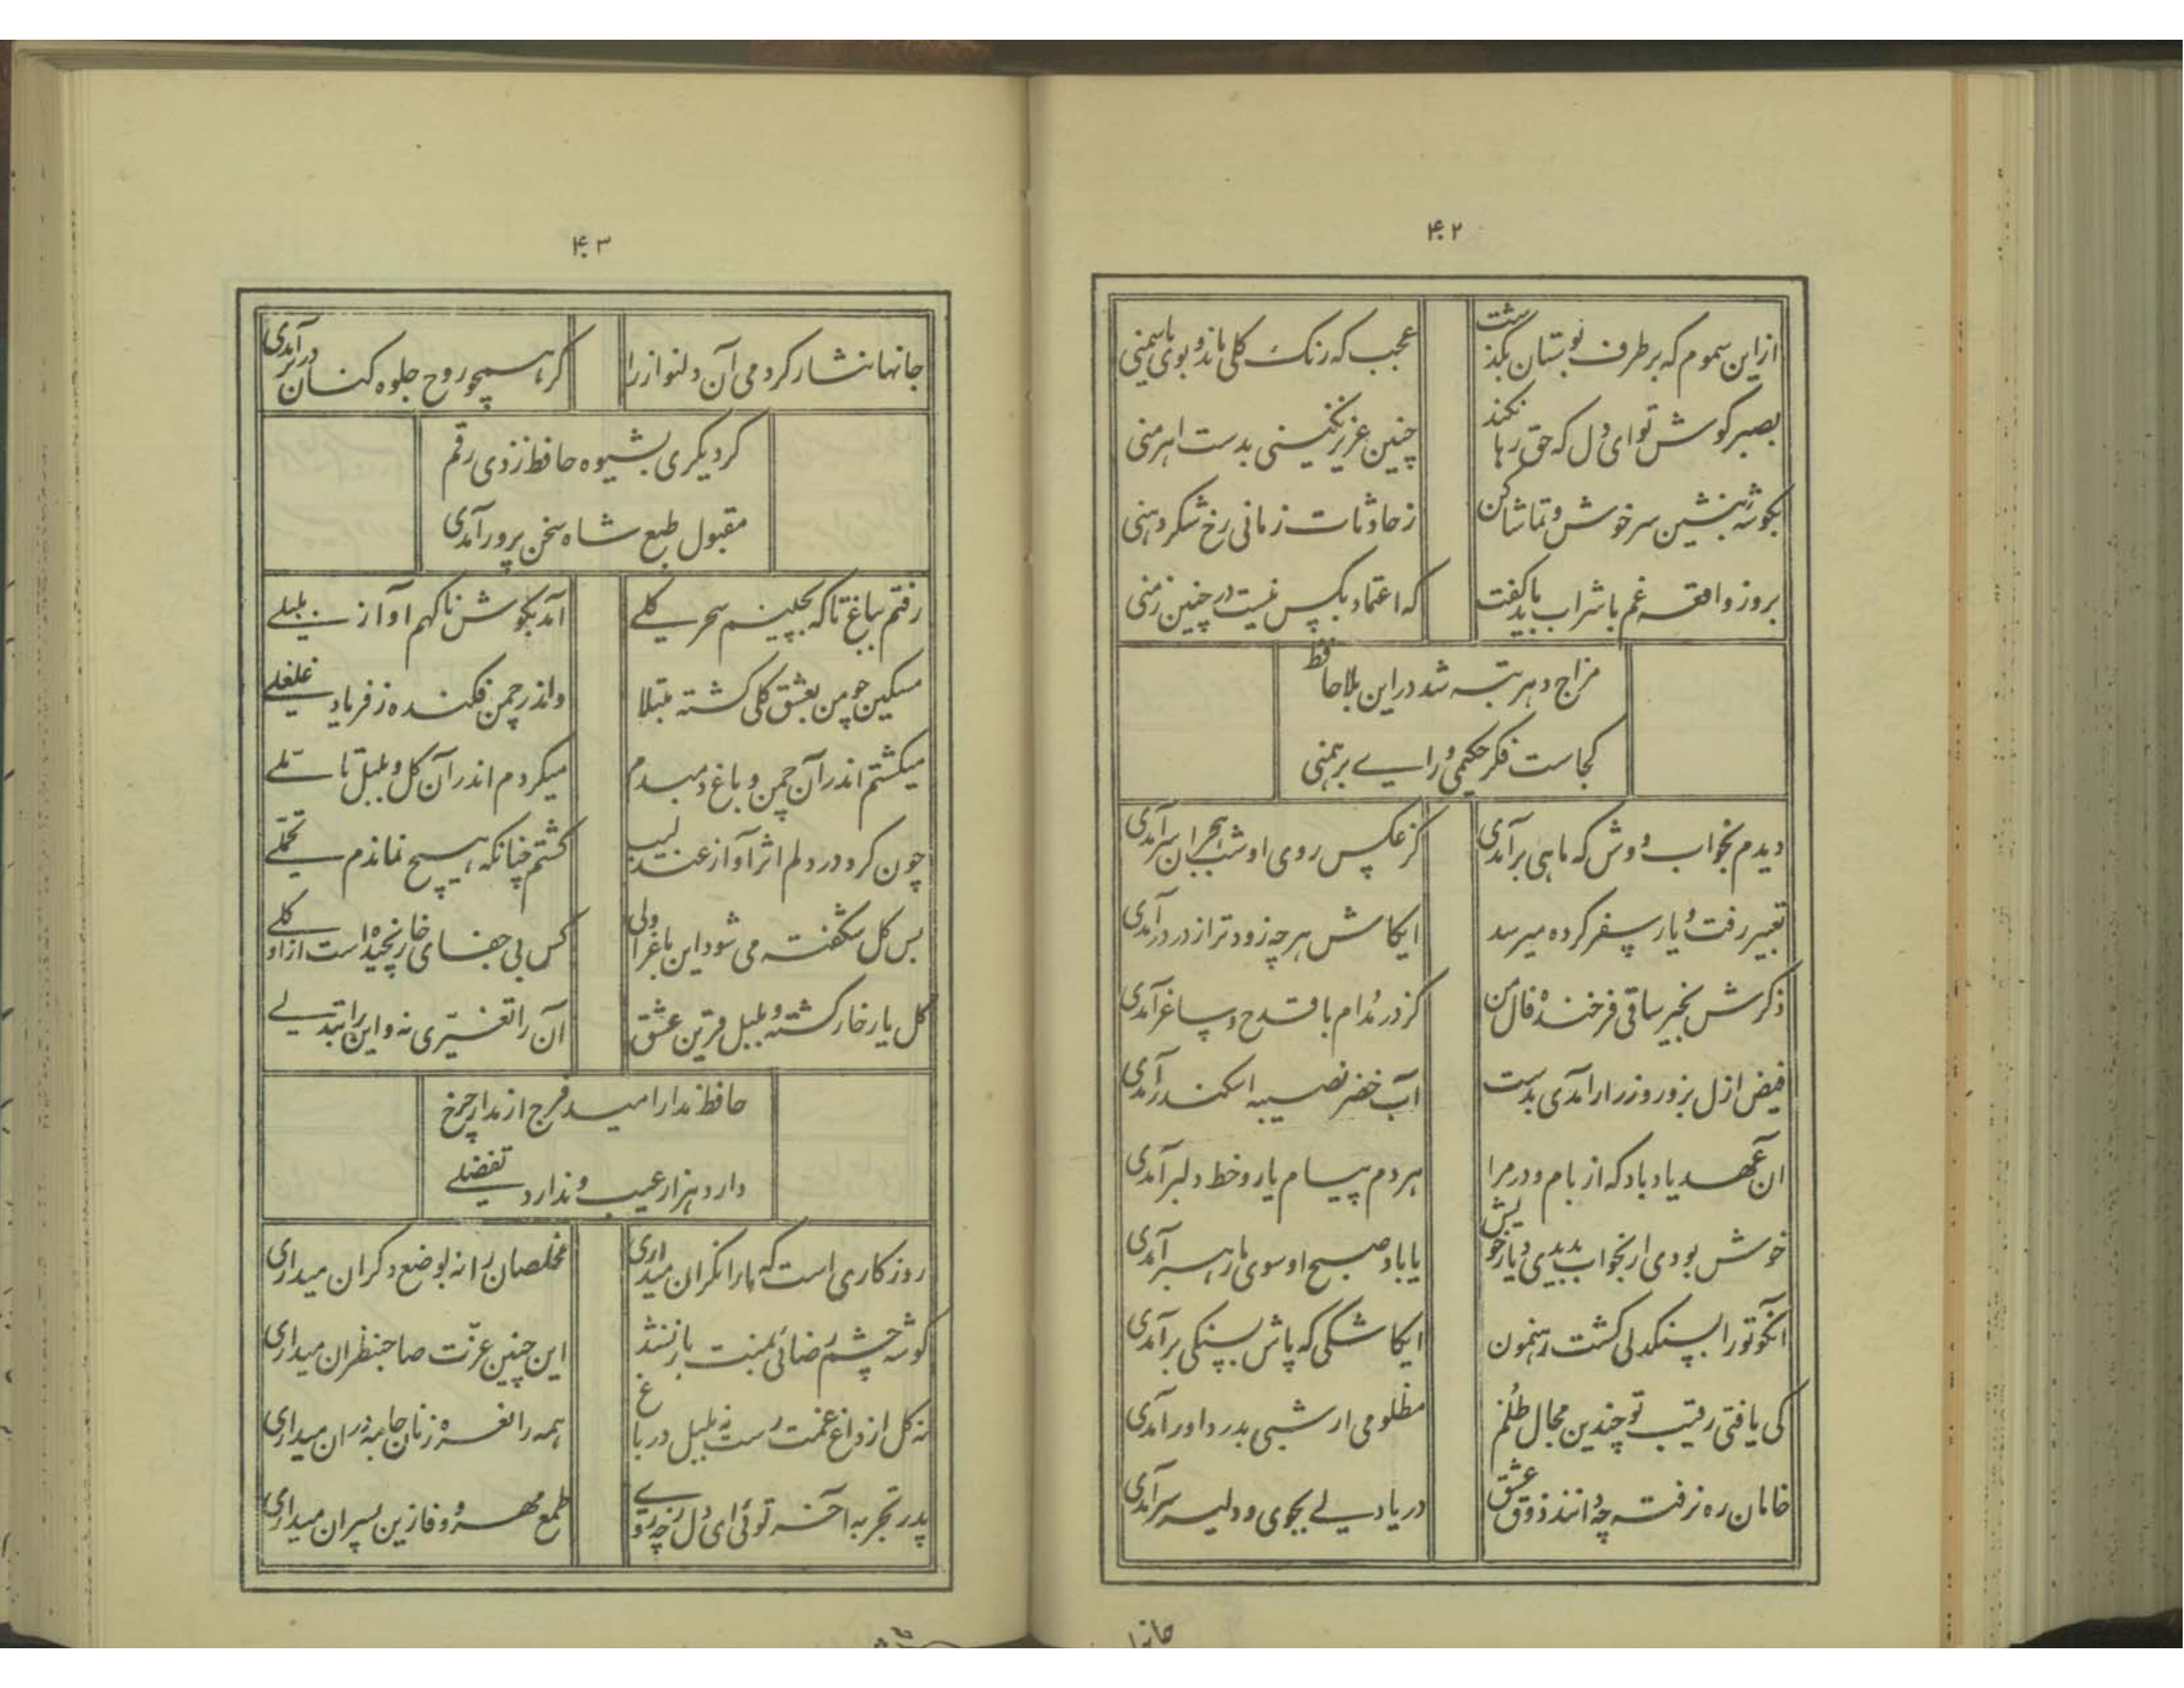 ۴۰۲
از این سموم که بر طرف بوستان بگذشت
عجب که رنگ گلی ماند و بوی یاسمنی
بصبر کوش تو ای دل که حق رها نکند
چنین عزیز نگینی بدست اهرمنی
بگوشه بنشین سرخوش و تماشا کن
ز حادثات زمانی رخ شکر دهنی
بروز واقعه غم با شراب باید گفت
که اعتماد بکس نیست در چنین زمنی
مزاج دهر تبه شد در این بلا حافظ
کجاست فکر حکیمی و رای برهمنی
دیدم بخواب دوش که ماهی برآمدی
کز عکس روی او شب هجران سرآمدی
تعبیر رفت و یار سفر کرده میرسد
ایکاش هر چه زودتر از در درآمدی
ذکرش بخیر ساقی فرخنده فال من
کز در مدام با قدح و ساغر آمدی
فیض ازل بزور و زر ار آمدی بدست
آب خضر نصیبه اسکندر آمدی
آن عهد یاد باد که از بام و در مرا
هر دم پیام یار و خط دلبر آمدی
خوش بودی ار بخواب بدیدی دیار خویش
یا باد صبح او سوی ما رهبر آمدی
آنکو تو را بسنگدلی گشت رهنمون
ایکاشکی که پاش بسنگی برآمدی
کی یافتی رقیب تو چندین مجال ظلم
مظلومی ار شبی بدر داور آمدی
خامان ره نرفته چه دانند ذوق عشق
دریا دلی بجوی و دلیر سرآمدی
جانها
۴۰۳
جانها نثار کردمی آن دلنواز را
گر همچو روح جلوه کنان در برآمدی
گر دیگری بشیوه حافظ زدی رقم
مقبول طبع شاه سخن پرور آمدی
رفتم بباغ تا که بچینم سحر گلی
آمد بگوش ناگهم آواز بلبلی
مسکین چو من بعشق گلی گشته مبتلا
واندر چمن فکنده ز فریاد غلغلی
میگشتم اندر آن چمن و باغ دمبدم
میکردم اندر آن گل و بلبل تاملی
چون کرد در دلم اثر آواز عندلیب
گشتم چنانکه هیچ نماندم تحملی
بس گل شکفته می شود این باغ را ولی
کس بی جفای خار نچیده است از او گلی
گل یار خار گشته و بلبل قرین عشق
آن را تغیری نه و این را تبدلی
حافظ مدار امید فرج از مدار چرخ
دارد هزار عیب و ندارد تفضلی
روزگاری است که ما را نگران میداری
مخلصان را نه بوضع دگران میداری
گوشه چشم رضائی بمنت باز نشد
این چنین عزت صاحبنظران میداری
نه گل از داغ غمت رست نه بلبل در باغ
همه را نعره زنان جامه دران میداری
پدر تجربه آخر توئی ای دل ز چه روی
طمع مهر و وفا زین پسران میداری